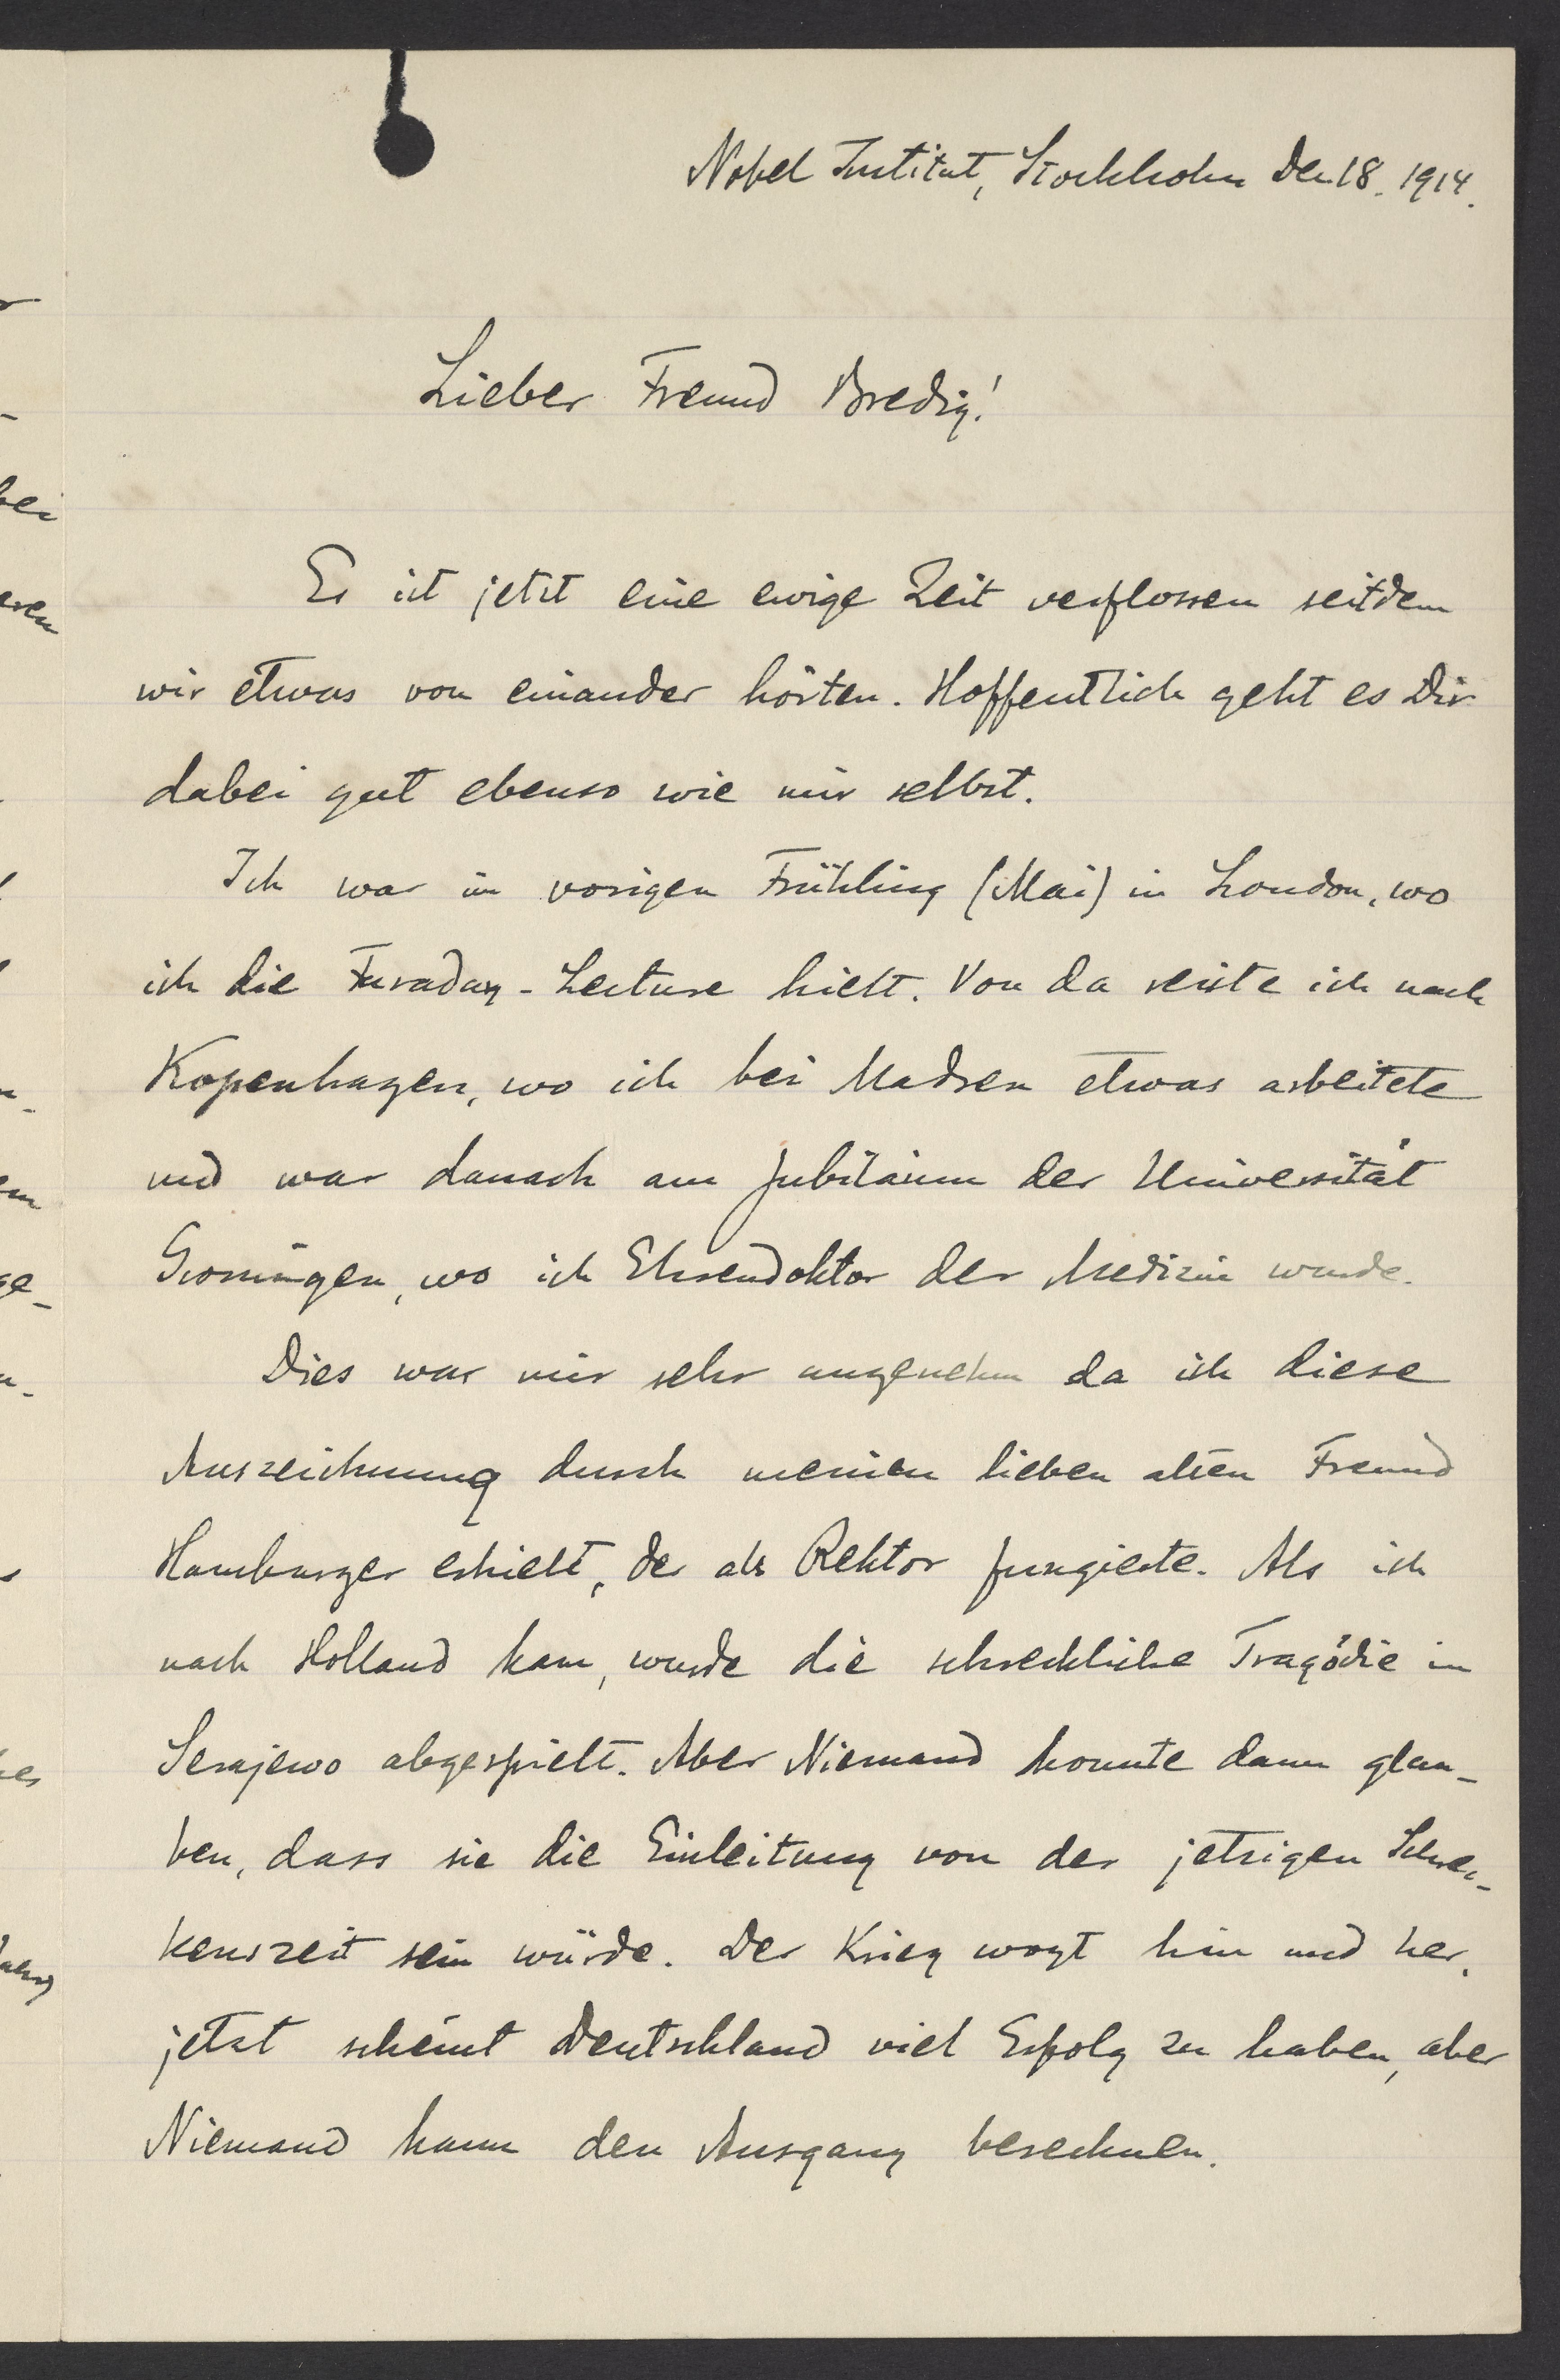 Nobel Institut, Stockholm Dec 18. 1914.
Lieber Freund Bredig!
Es ist jetzt eine ewige Zeit verflossen seitdem
wir etwas von einander hörten. Hoffentlich geht es Dir
dabei gut ebenso wie mir selbst.
Ich war im vorigen Frühling (Mai) in London, wo
ich die Faraday-Lecture hielt. Von da reiste ich nach
Kopenhagen, wo ich bei Madsen etwas arbeitete
und war danach am Jubiläum der Universität
Groningen, wo ich Ehrendoktor der Medizin wurde.
Dies war mir sehr angenehm da ich diese
Auszeichnung durch meinen lieben alten Freund
Hamburger erhielt, der als Rektor fungierte. Als ich
nach Holland kam, wurde die schreckliche Tragödie in
Serajewo abgespielt. Aber Niemand konnte dann glau-
ben, dass sie die Einleitung von der jetzigen Schrec-
kenszeit sein würde. Der Krieg wogt hin und her,
jetzt scheint Deutschland viel Erfolg zu haben, aber
Niemand kann den Ausgang berechnen.